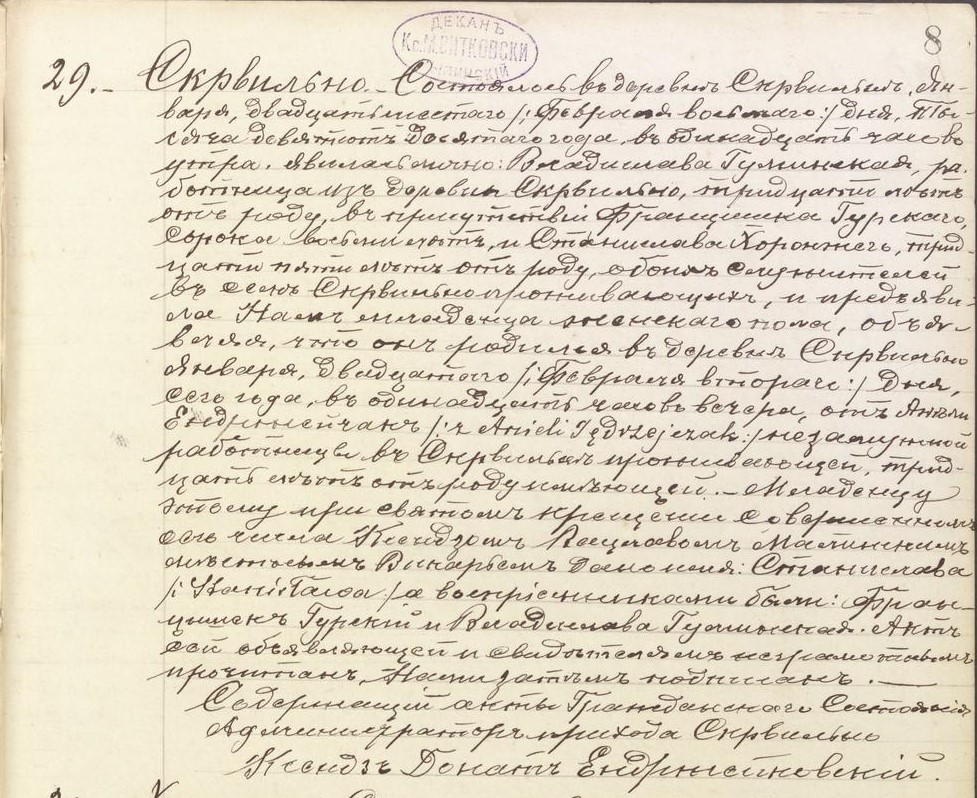 8
ДЕКАНЪ
Кс. М. ВИТКОВСКИ
29. – Скрвильно. – Состоялось въ деревнѣ Скрвильнѣ, Ян-
варя, двадцать шестаго /: Февраля восьмаго :/ дня, ты-
сяча девятьсотъ десятаго года, въ одинадцать часовъ
утра. Явилась лично: Владислава Гуминская, ра-
ботница изъ деревни Скрвильно, тридцати лѣтъ
отъ роду, въ присутствіи Францишка Гурскаго,
сорока восьми лѣтъ, и Станислава Хоронжего, трид-
цати пяти лѣтъ отъ роду, обоихъ служителей
въ селѣ Скрвильно проживающихъ, и предъяви-
ла Намъ младенца женскаго пола, объя-
вляя, что онъ родился въ деревнѣ Скрвильно
Января, двадцатаго /: Февраля втораго :/ дня,
сего года, въ одинадцать часовъ вечера, отъ Анели
Ендржейчакъ /: z Anieli Jędrzejczak :/ незамужной
работницы въ Скрвильнѣ проживающей, трид-
цать лѣтъ отъ роду имѣющей. – Младенцу
этому при святомъ крещеніи совершенномъ
сего числа Ксендзомъ Вацлавомъ Малиннимъ
мѣстнымъ Викаріемъ дано имя: Станислава
/: Stanisława :/ а воспріемниками были: Фран-
цишекъ Гурскій и Владислава Гуминская. Актъ
сей объявляющей и свидѣтелямъ неграмотнымъ
прочитанъ, Нами затѣмъ подписанъ. –
Содержащій акты Гражданскаго Состоянія
Администраторъ прихода Скрвильно
Ксендзъ Донатъ Ендржеіовскій.